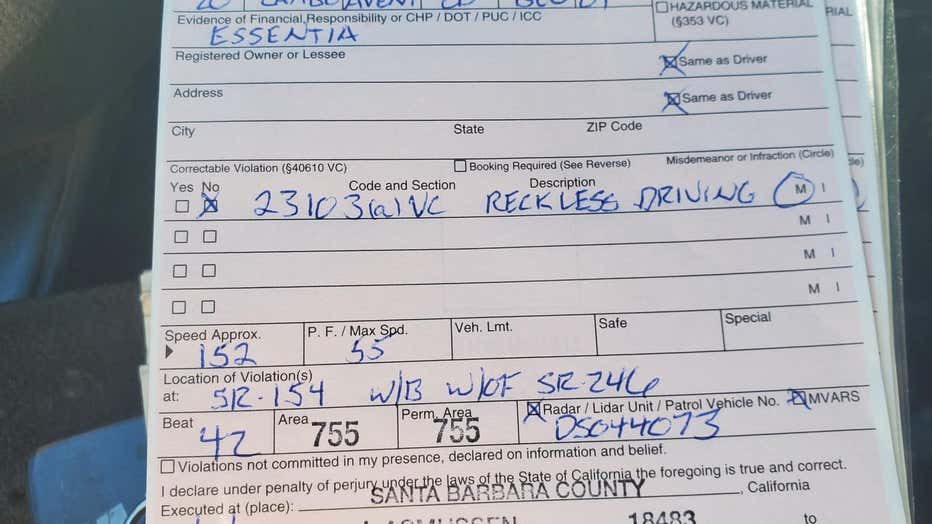 20 LAMBO AVENT CD BLU 01
HAZARDOUS MATERIAL
(§353 VC)
RIAL
Evidence of Financial Responsibility or CHP / DOT / PUC / ICC
ESSENTIA
Registered Owner or Lessee
Same as Driver
Address
Same as Driver
City State ZIP Code
Correctable Violation (§40610 VC) Booking Required (See Reverse) Misdemeanor or Infraction (Circle)
Yes No Code and Section Description
23103(a) VC RECKLESS DRIVING M I
M I
M I
M I
Speed Approx. P. F. / Max Spd. Veh. Lmt. Safe Special
152 55
Location of Violation(s)
at: SR-154 W/B W/OF SR-246
Beat Area Perm. Area Radar / Lidar Unit / Patrol Vehicle No. MVARS
42 755 755 DS044073
Violations not committed in my presence, declared on information and belief.
I declare under penalty of perjury under the laws of the State of California the foregoing is true and correct.
Executed at (place): SANTA BARBARA COUNTY, California
18483 to